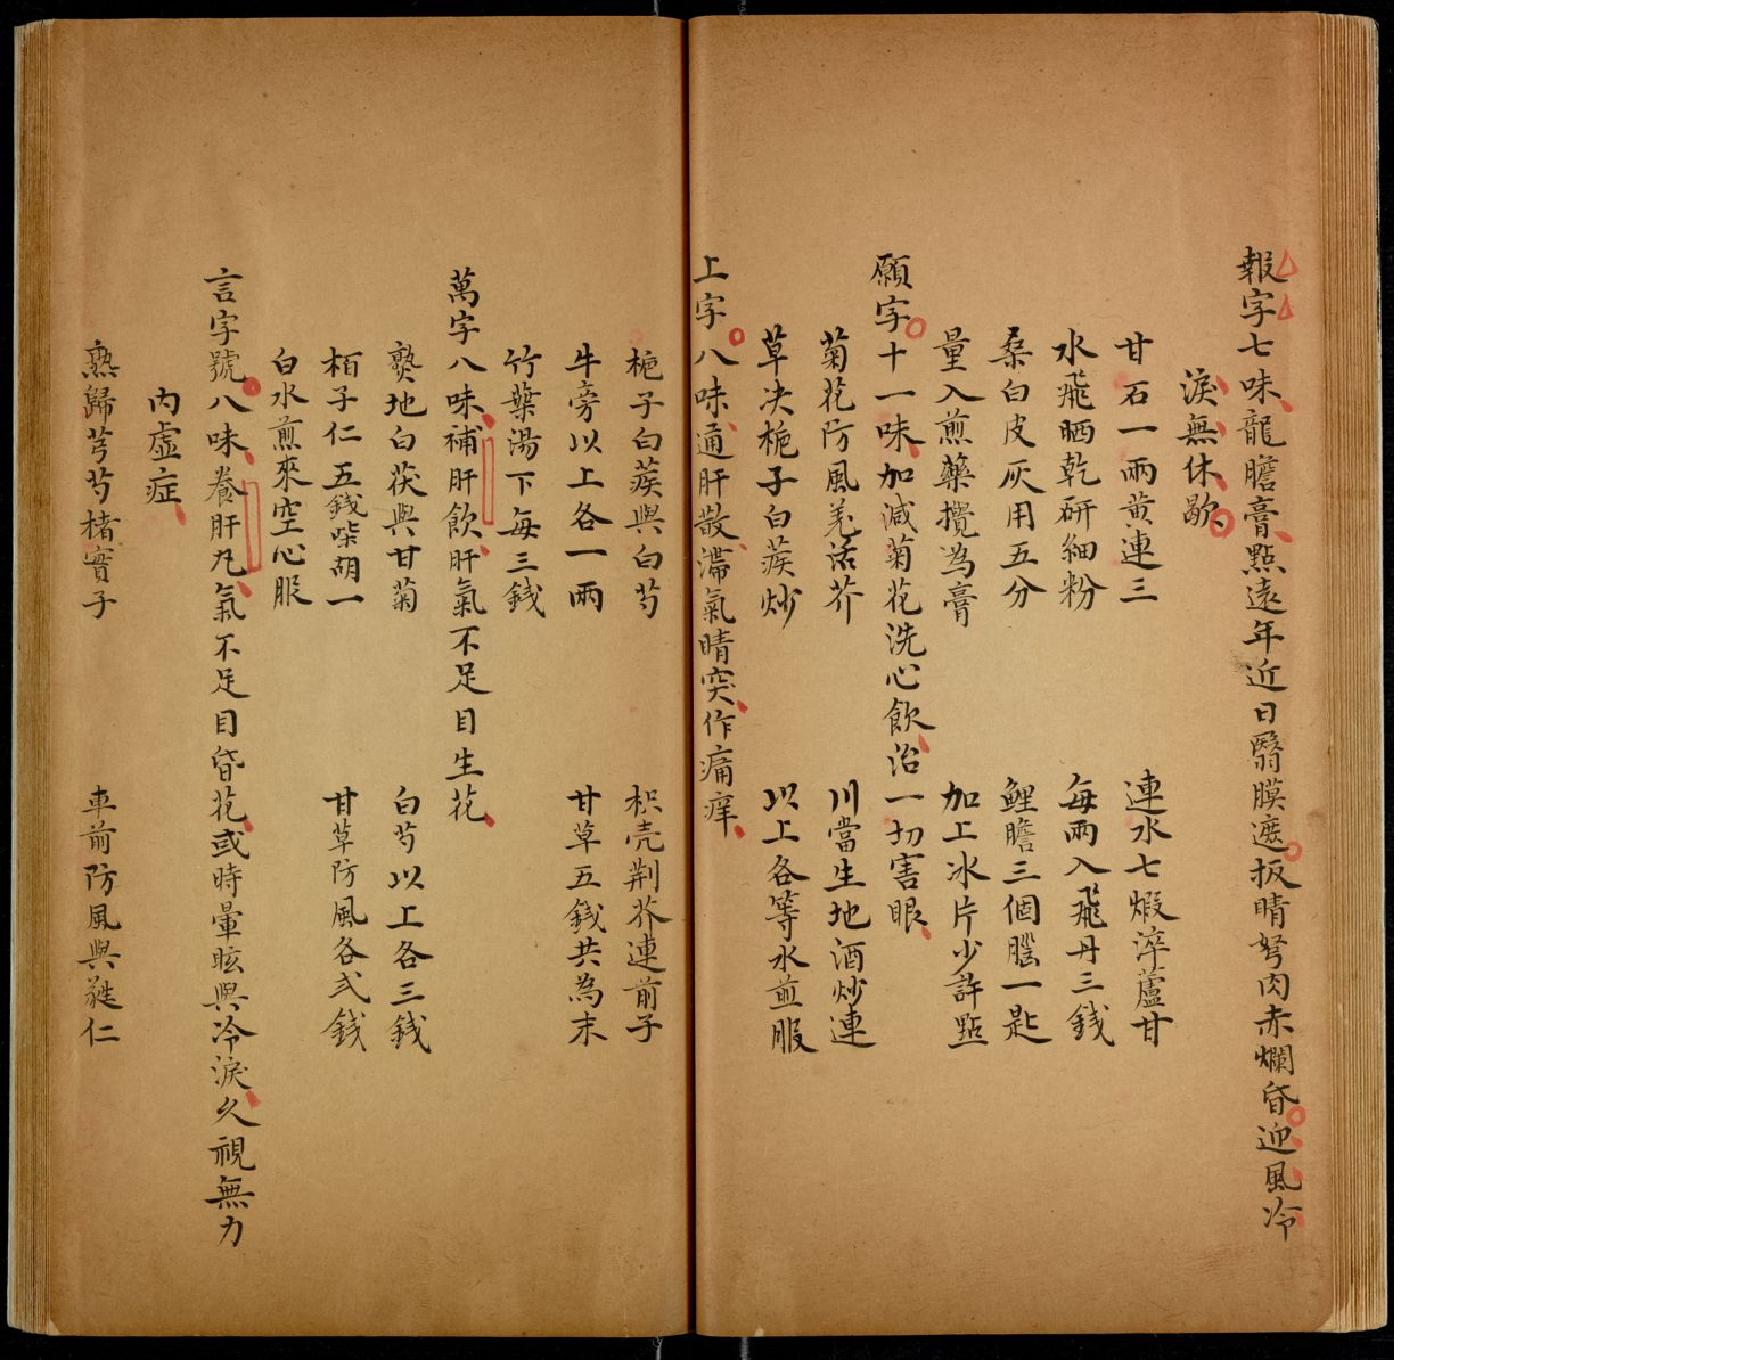 報字七味龍膽膏點遠年近日翳膜遮扳睛胬肉赤爛昏迎風冷
淚無休歇
甘石一兩黄連三　連水七煅淬蘆甘
水飛晒乾研細粉　每兩入飛丹三錢
桑白皮灰用五分　鯉膽三個腦一匙
量入煎藥攪為膏　加上冰片少許點
願字十一味加減菊花洗心飲治一切害眼
菊花防風羌活芥　川當生地酒炒連
草决梔子白蒺炒　以上各等水煎服
上字八味通肝散滯氣睛突作痛痒
梔子白蒺與白芍　枳壳荆芥連前子
牛旁以上各一兩　甘草五錢共為末
竹葉湯下每三錢
萬字八味補肝飲肝氣不足目生花
熟地白茯與甘菊　白芍以上各三錢
栢子仁五錢柴胡一　甘草防風各弍錢
白水煎來空心服
言字號八味養肝丸氣不足目昏花或時暈眩與冷淚久視無力
内虛症
熟歸芎芍楮實子　車前防風與蕤仁